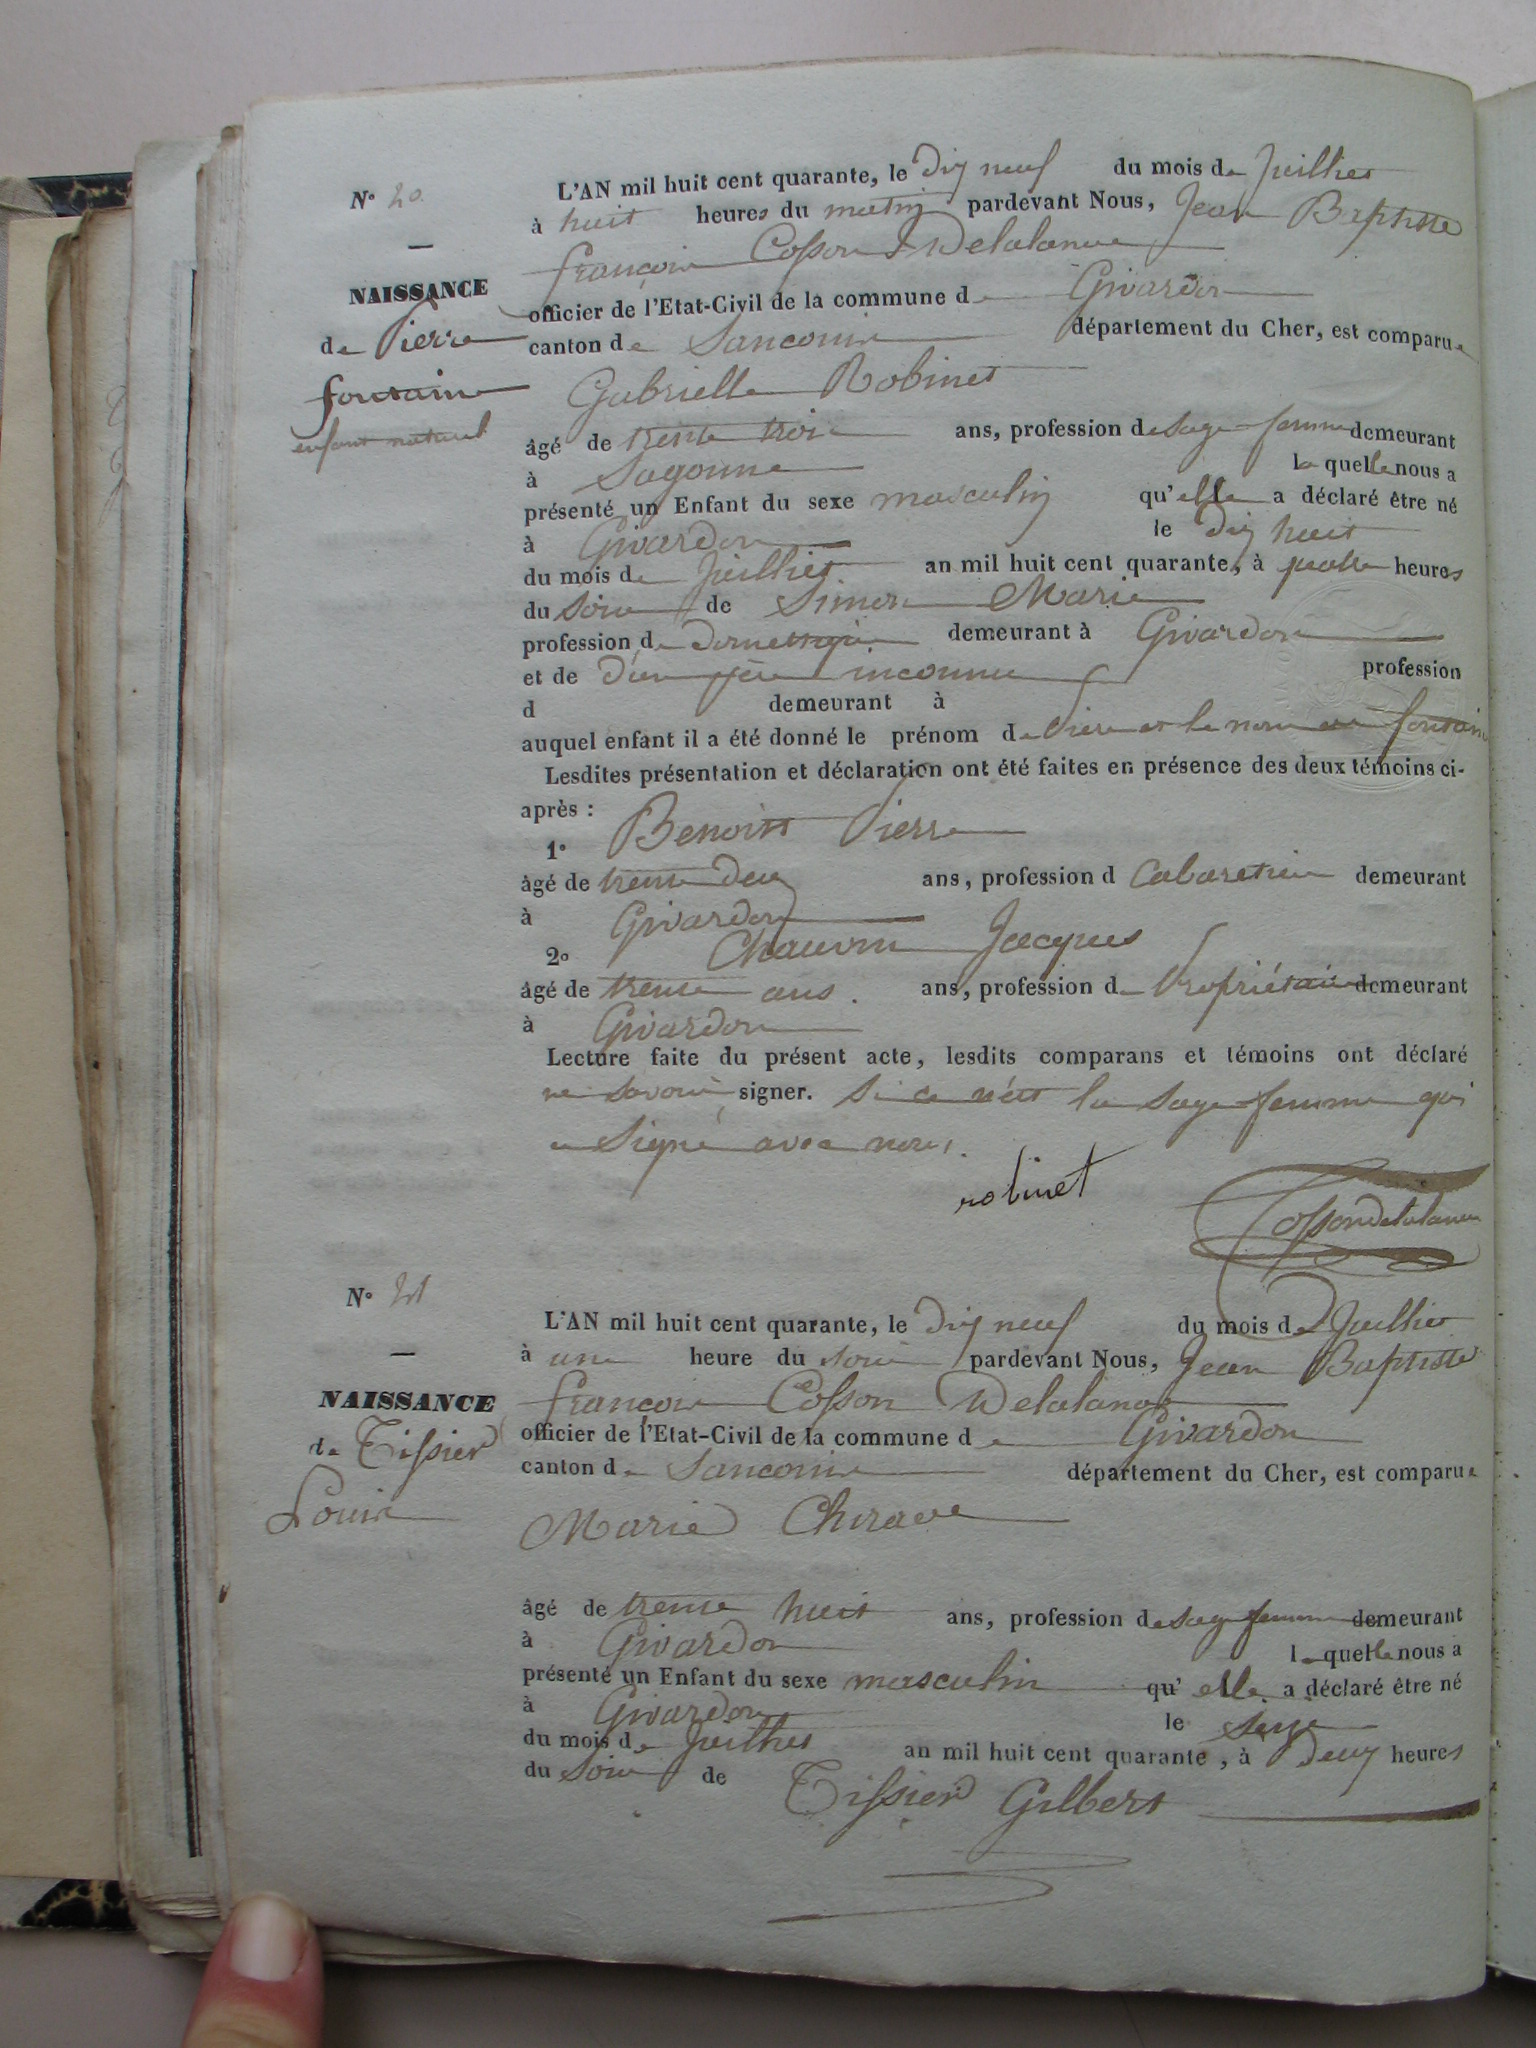 N° 20.
—
NAISSANCE
de Pierre
fontaine
enfant naturel
L'AN mil huit cent quarante, le Dix neuf du mois de Juilliet
à huit heures du matin pardevant Nous, Jean Baptiste
françois Cosson Delalanne
officier de l'Etat-Civil de la commune de Givardon
canton de Sancoins département du Cher, est comparue
Gabrielle Robinet
âgé de trente trois ans, profession de sage femme demeurant
à Sagonne laquelle nous a
présenté un Enfant du sexe masculin qu'elle a déclaré être né
à Givardon le Dix huit
du mois de Juilliet an mil huit cent quarante, à quatre heures
du soir de Simon Marie
profession de domestique demeurant à Givardon
et de D'un père inconnu profession
d demeurant à
auquel enfant il a été donné le prénom de Pierre et le nom de fontaine
Lesdites présentation et déclaration ont été faites en présence des deux témoins ci-
après :
1° Benoist Pierre
âgé de trente deux ans, profession d Cabaretier demeurant
à Givardon
2° Chauvin Jacques
âgé de trente ans. ans, profession de Propriétaire demeurant
à Givardon
Lecture faite du présent acte, lesdits comparans et témoins ont déclaré
ne savoir signer. Si ce n'est la sage femme qui
a signé avec nous.
robinet
Cossondelalanne
N° 21
—
NAISSANCE
de Tissier
Louis
L'AN mil huit cent quarante, le Dix neuf du mois de Juilliet
à une heure du soir pardevant Nous, Jean Baptiste
françois Cosson Delalanne
officier de l'Etat-Civil de la commune de Givardon
canton de Sancoins département du Cher, est comparue
Marie
âgé de trente huit ans, profession de sage femme demeurant
à Givardon laquelle nous a
présenté un Enfant du sexe masculin qu'elle a déclaré être né
à Givardon le seize
du mois de Juilliet an mil huit cent quarante, à Deux heures
du soir de Tissier Gilbert